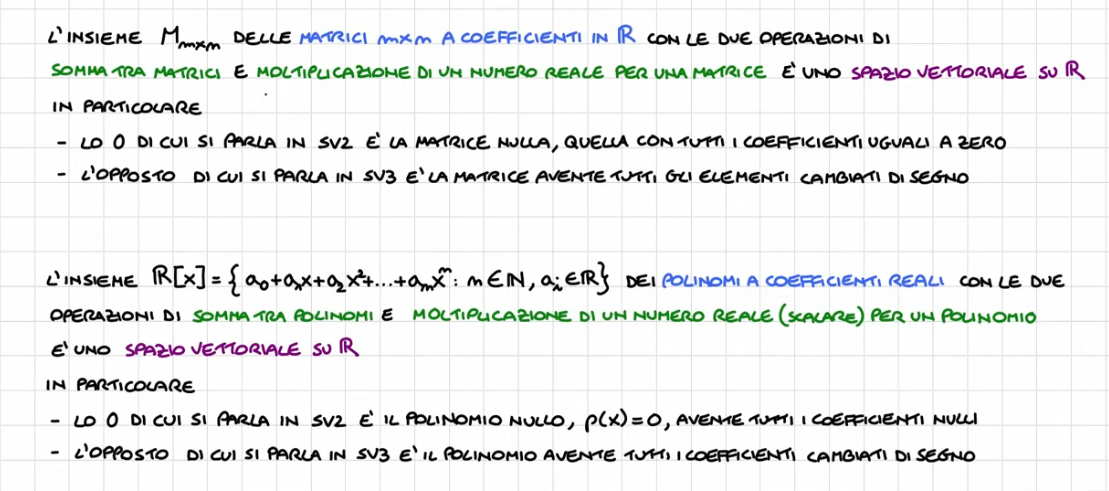 L'INSIEME Mm×n DELLE MATRICI m×n A COEFFICIENTI IN ℝ CON LE DUE OPERAZIONI DI
SOMMA TRA MATRICI E MOLTIPLICAZIONE DI UN NUMERO REALE PER UNA MATRICE E' UNO SPAZIO VETTORIALE SU ℝ
IN PARTICOLARE
- LO 0 DI CUI SI PARLA IN SV2 E' LA MATRICE NULLA, QUELLA CON TUTTI I COEFFICIENTI UGUALI A ZERO
- L'OPPOSTO DI CUI SI PARLA IN SV3 E' LA MATRICE AVENTE TUTTI GLI ELEMENTI CAMBIATI DI SEGNO
L'INSIEME ℝ[x] = { a₀+a₁x+a₂x²+...+aₙxⁿ : n∈ℕ, aᵢ∈ℝ} DEI POLINOMI A COEFFICIENTI REALI CON LE DUE
OPERAZIONI DI SOMMA TRA POLINOMI E MOLTIPLICAZIONE DI UN NUMERO REALE (SCALARE) PER UN POLINOMIO
E' UNO SPAZIO VETTORIALE SU ℝ
IN PARTICOLARE
- LO 0 DI CUI SI PARLA IN SV2 E' IL POLINOMIO NULLO, p(x)=0, AVENTE TUTTI I COEFFICIENTI NULLI
- L'OPPOSTO DI CUI SI PARLA IN SV3 E' IL POLINOMIO AVENTE TUTTI I COEFFICIENTI CAMBIATI DI SEGNO